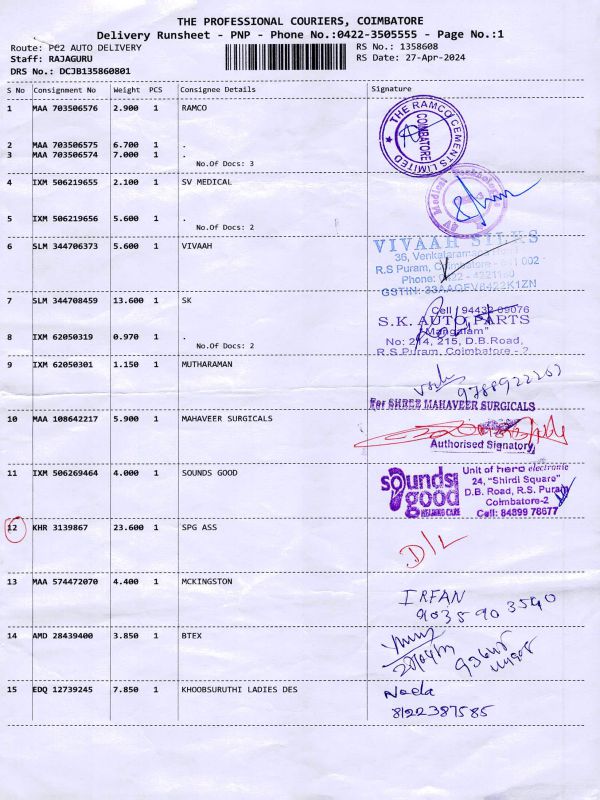 THE PROFESSIONAL COURIERS, COIMBATORE
Delivery Runsheet - PNP - Phone No.:0422-3505555 - Page No.:1
Route: PC2 AUTO DELIVERY
RS No.: 1358608
Staff: RAJAGURU
RS Date: 27-Apr-2024
DRS No.: DCJB135860801
S No Consignment No Weight PCS Consignee Details Signature
1 MAA 703506576 2.900 1 RAMCO
THE RAMCO CEMENTS LIMITED
COIMBATORE
2 MAA 703506575 6.700 1 .
3 MAA 703506574 7.000 1 .
No.Of Docs: 3
4 IXM 506219655 2.100 1 SV MEDICAL
SV Medical
5 IXM 506219656 5.600 1 .
No.Of Docs: 2
6 SLM 344706373 5.600 1 VIVAAH
VIVAAH SILKS
36, Venkataramana
R.S Puram, Coimbatore - 641 002
Phone: 0422 -
GSTIN: 33AAQFV8422K1ZN
7 SLM 344708459 13.600 1 SK
Cell: 94432 09076
S.K. AUTO PARTS
"Mangalam"
No: 214, 215, D.B.Road,
R.S Puram, Coimbatore - 2
8 IXM 62050319 0.970 1 .
No.Of Docs: 2
9 IXM 62050301 1.150 1 MUTHARAMAN
For SHREE MAHAVEER SURGICALS
10 MAA 108642217 5.900 1 MAHAVEER SURGICALS
Authorised Signatory
11 IXM 506269464 4.000 1 SOUNDS GOOD
sounds good
HEARING CARE
Unit of hero electronic
24, "Shirdi Square"
D.B. Road, R.S. Puram
Coimbatore-2
Cell: 84899 78677
12 KHR 3139867 23.600 1 SPG ASS
D/L
13 MAA 574472070 4.400 1 MCKINGSTON
IRFAN
9035903540
14 AMD 28439400 3.850 1 BTEX
15 EDQ 12739245 7.850 1 KHOOBSURUTHI LADIES DES
Nada
8122387585